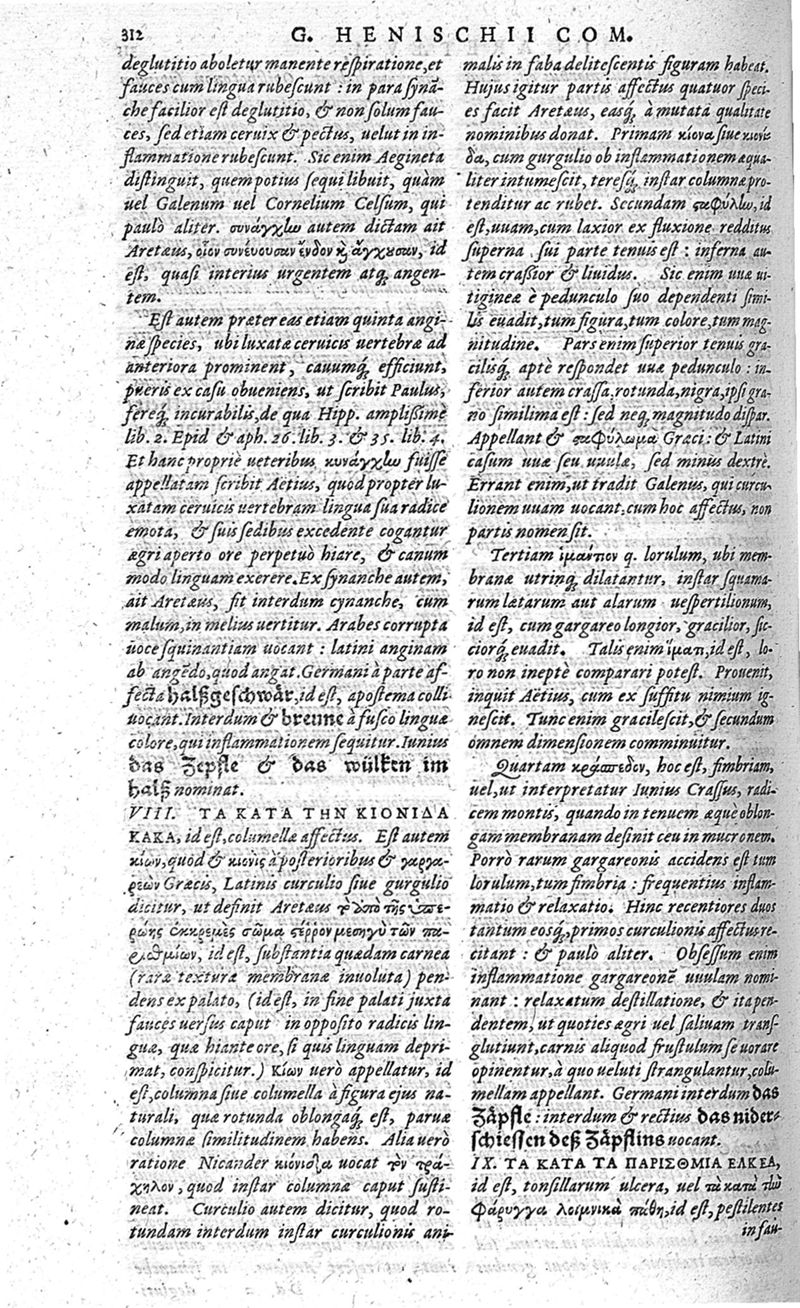 312
G. HENISCHII COM.
deglutitio aboletur manente respiratione, et
fauces cum lingua rubescunt: in parasynan-
che facilior est deglutitio, & non solum fau-
ces, sed etiam ceruix & pectus, uelut in in-
flammatione rubescunt. Sic enim Aegineta
distinguit, quem potius sequi libuit, quàm
uel Galenum uel Cornelium Celsum, qui
paulò aliter. συνάγχlω autem dictam ait
Aretæus, οἷον συνέυουσαν ἔνδον κỳ ἄγχουσαν, id
est, quasi interius urgentem atq; angen-
tem.
Est autem præter eas etiam quinta angi-
næ species, ubi luxatæ ceruicis uertebræ ad
anteriora prominent, cauumq; efficiunt,
pueris ex casu obueniens, ut scribit Paulus,
fereq; incurabilis, de qua Hipp. amplissimè
lib. 2. Epid & aph. 26. lib. 3. & 35. lib. 4.
Et hanc propriè ueteribus κυνάγχlω fuisse
appellatam scribit Aetius, quòd propter lu-
xatam ceruicis uertebram lingua sua radice
emota, & suis sedibus excedente cogantur
ægri aperto ore perpetuò hiare, & canum
modo linguam exerere. Ex synanche autem,
ait Aretæus, fit interdum cynanche, cum
malum, in melius uertitur. Arabes corrupta
uoce squinantiam uocant: latini anginam
ab angēdo, quod angat. Germani à parte af-
fecta halßgeschwår, id est, apostema colli
uocant. Interdum & breune à fusco linguæ
colore, qui inflammationem sequitur. Iunius
das Zepfle & das wülken im
halß nominat.
VIII. ΤΑ ΚΑΤΑ ΤΗΝ ΚΙΟΝΙΔΑ
ΚΑΚΑ, id est, columellæ affectus. Est autem
κίων, quod & κιονὶς à posterioribus & γαργα-
ρεὼν Græcis, Latinis curculio siue gurgulio
dicitur, ut definit Aretæus τὸ ἀπὸ τῆς ὑπε-
ρώης ἐκκρεμὲς σῶμα τέῤῥον μεσηγὺ τῶν πα-
ρισθμίων, id est, substantia quædam carnea
(raræ texturæ membranæ inuoluta) pen-
dens ex palato, (id est, in fine palati juxta
fauces uersus caput in opposito radicis lin-
guæ, quæ hiante ore, si quis linguam depri-
mat, conspicitur.) Κίων uero appellatur, id
est, columna siue columella à figura ejus na-
turali, quæ rotunda oblongaq; est, paruæ
columnæ similitudinem habens. Alia uerò
ratione Nicander uocat τὸν τρά-
χηλον, quod instar columnæ caput susti-
neat. Curculio autem dicitur, quod ro-
tundam interdum instar curculionis ani-
malis in faba delitescentis figuram habeat.
Hujus igitur partis affectus quatuor speci-
es facit Aretæus, easq; à mutata qualitate
nominibus donat. Primam κίονα siue κιονί-
δα, cum gurgulio ob inflammationem æqua-
liter intumescit, teresq; instar columnæ pro-
tenditur ac rubet. Secundam σταφυλlω, id
est, uuam, cum laxior ex fluxione redditus
superna sui parte tenuis est: inferna au-
tem crassior & liuidus. Sic enim uuæ ui-
tigineæ è pedunculo suo dependenti simi-
lis euadit, tum figura, tum colore, tum mag-
nitudine. Pars enim superior tenuis gra-
cilisq; aptè respondet uuæ pedunculo: in-
ferior autem crassa, rotunda, nigra, ipsi gra-
no simillima est: sed neq; magnitudo dispar.
Appellant & σταφύλωμα Græci: & Latini
casum uuæ seu uuulæ, sed minus dextrè.
Errant enim, ut tradit Galenus, qui curcu-
lionem uuam uocant: cum hoc affectus, non
partis nomen sit.
Tertiam ἱμάντιον q. lorulum, ubi mem-
branæ utrinq; dilatantur, instar squama-
rum latarum aut alarum uespertilionum,
id est, cum gargareo longior, gracilior, sic-
ciorq; euadit. Talis enim ἵμαντι, id est, lo-
ro non ineptè comparari potest. Prouenit,
inquit Aëtius, cum ex suffitu nimium ig-
nescit. Tunc enim gracilescit, & secundum
omnem dimensionem comminuitur.
Quartam κράσπεδον, hoc est, fimbriam,
uel, ut interpretatur Iunius Crassus, radi-
cem montis, quando in tenuem æquè oblon-
gam membranam definit ceu in mucronem.
Porrò rarum gargareonis accidens est tum
lorulum, tum fimbria: frequentius inflam-
matio & relaxatio. Hinc recentiores duos
tantum eosq; primos curculionis affectus re-
citant: & paulò aliter. Obsessum enim
inflammatione gargareonē uuulam nomi-
nant: relaxatum destillatione, & ita pen-
dentem, ut quoties ægri uel saliuam trans-
glutiunt, carnis aliquod frustulum se uorare
opinentur, à quo ueluti strangulantur, colu-
mellam appellant. Germani interdum das
Zåpfle: interdum & rectius das nider-
schiessen deß Zåpflins uocant.
IX. ΤΑ ΚΑΤΑ ΤΑ ΠΑΡΙΣΘΜΙΑ ΕΛΚΕΑ,
id est, tonsillarum ulcera, uel τὰ κατὰ τlὼ
φάρυγγα λοιμικὰ πάθη, id est, pestilentes
in fau-